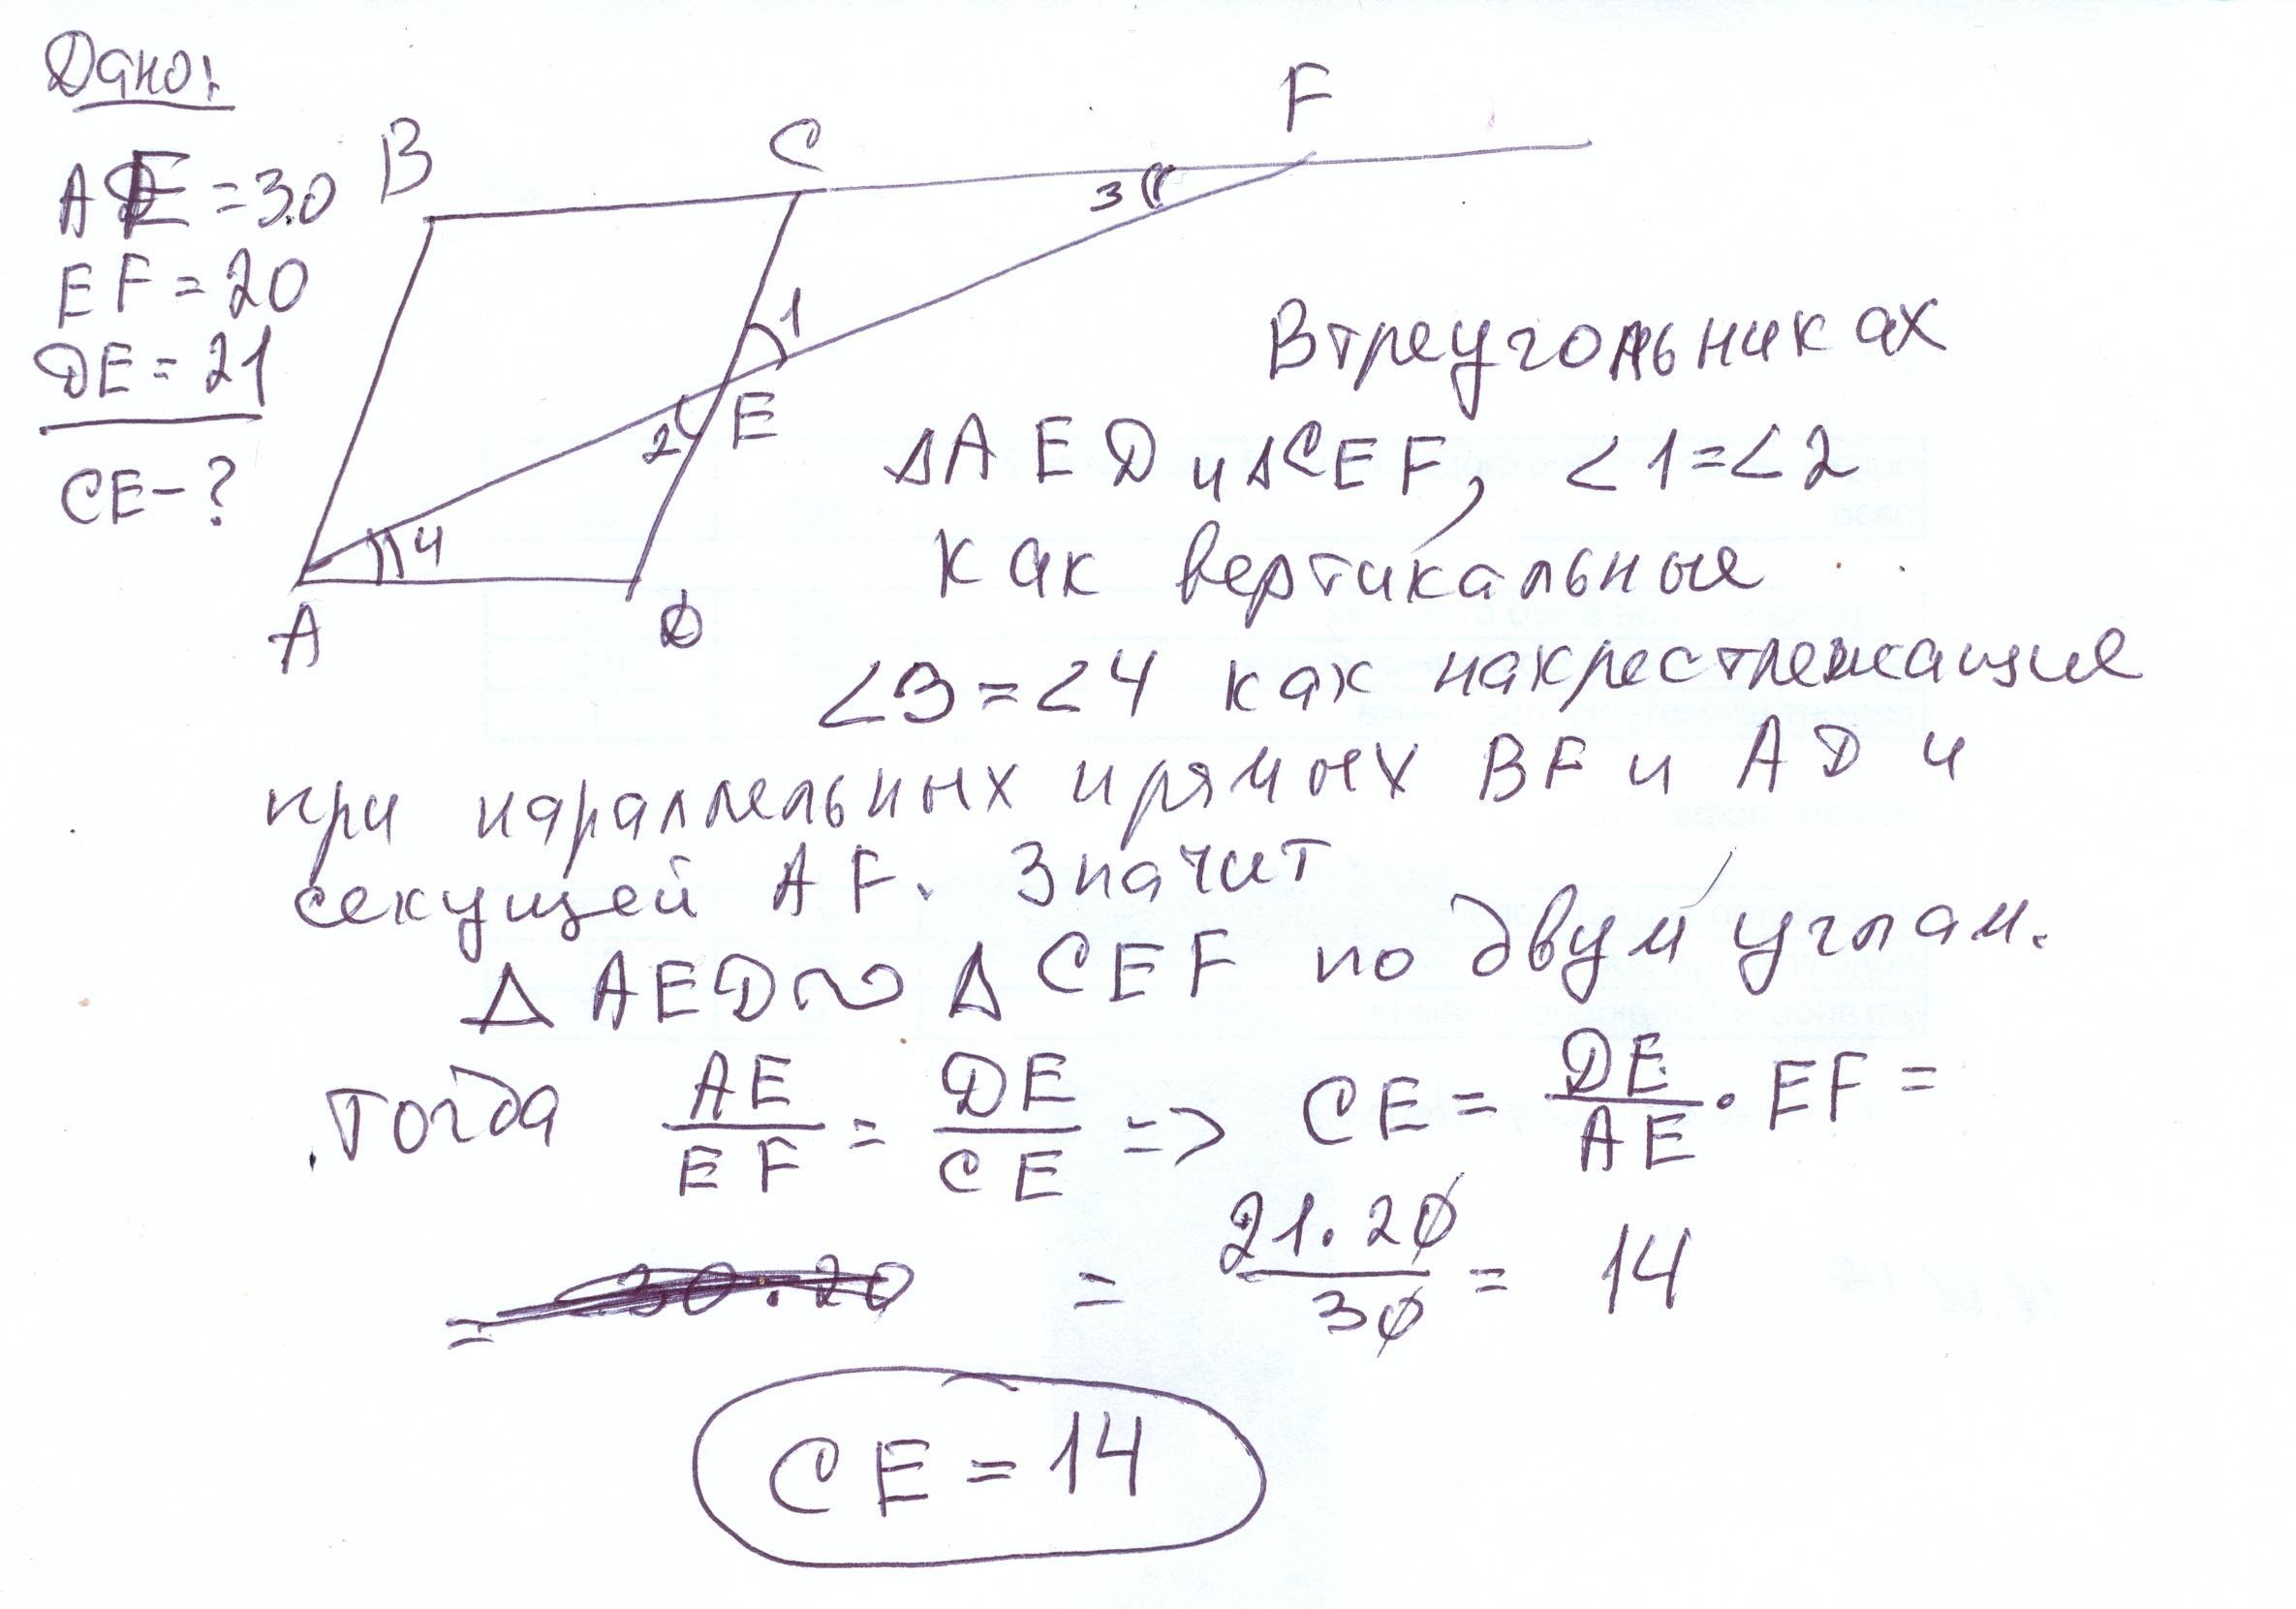 Дано:
AE = 30
EF = 20
DE = 21
CE - ?
B
C
F
3
1
2
E
4
A
D
В треугольниках
Δ AED и Δ CEF, ∠1 = ∠2
как вертикальные
∠3 = ∠4 как накрестлежащие
при параллельных прямых BF и AD и
секущей AF. Значит
Δ AED ∼ Δ CEF по двум углам.
Тогда AE/EF = DE/CE => CE = DE/AE · EF =
= 30·20 = 21·20/30 = 14
CE = 14